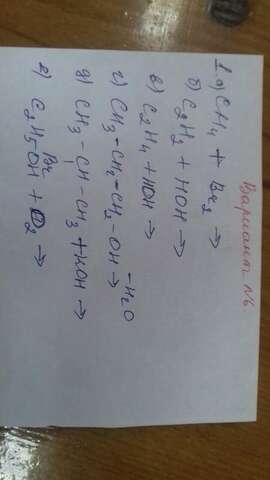 Вариант №6
1. а) CH4 + Br2 →
б) C2H2 + HOH →
в) C2H4 + HOH →
г) CH3-CH2-CH2-OH -H2O →
д) CH3-CH-CH3 + KOH →
Br
е) C2H5OH + O2 →